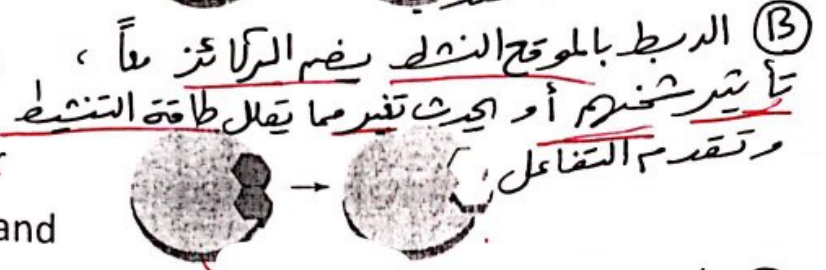 Ⓑ الربط بالموقع النشط يضم الركائز معاً ،
تأثير شحنهم أو يحدث تغير مما يقلل طاقة التنشيط
وتقدم التفاعل
and